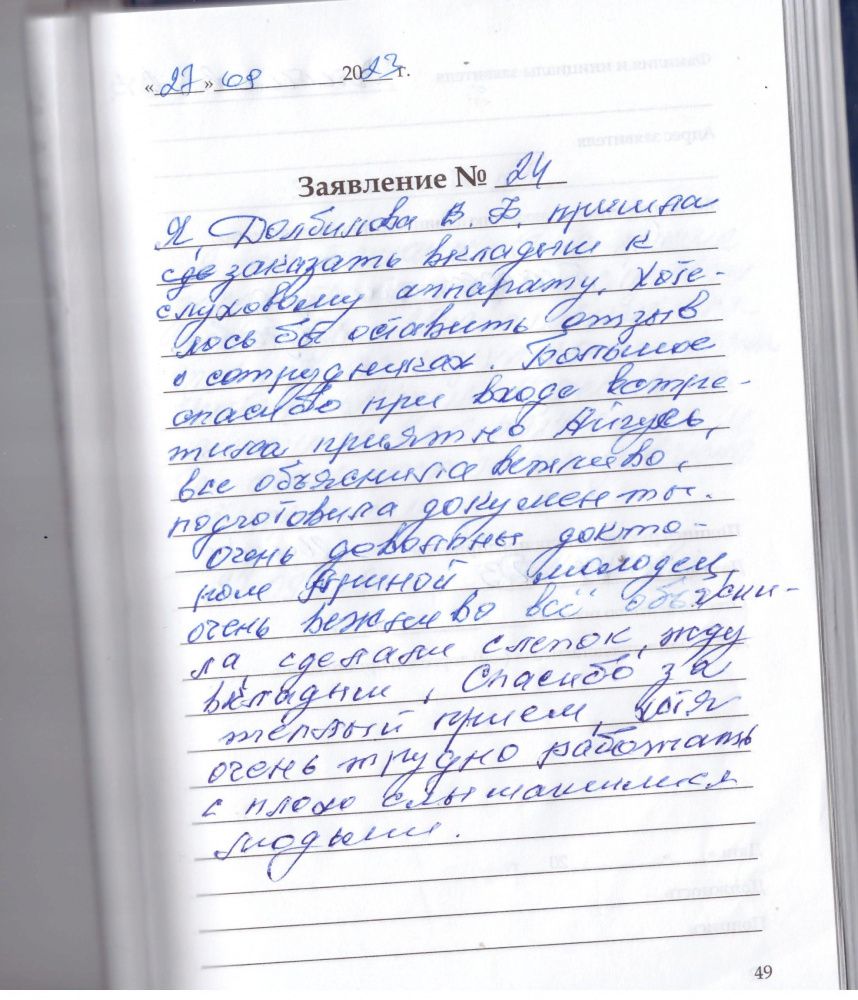 «27» 09 2023 г.
Заявление № 24
Я, Долбилова В. Ф. пришла
заказать вкладыш к
слуховому аппарату. Хоте-
лось бы оставить отзыв
о сотрудниках. Большое
спасибо при входе встре-
тила приятно Айгуль,
все объяснила вежливо,
подготовила документы.
Очень довольны докто-
ром Ириной молодец,
очень вежливо всё объясни-
ла, сделали слепок, жду
вкладыш, Спасибо за
теплый прием, хотя
очень трудно работать
с плохо слышащимися
людьми.
49